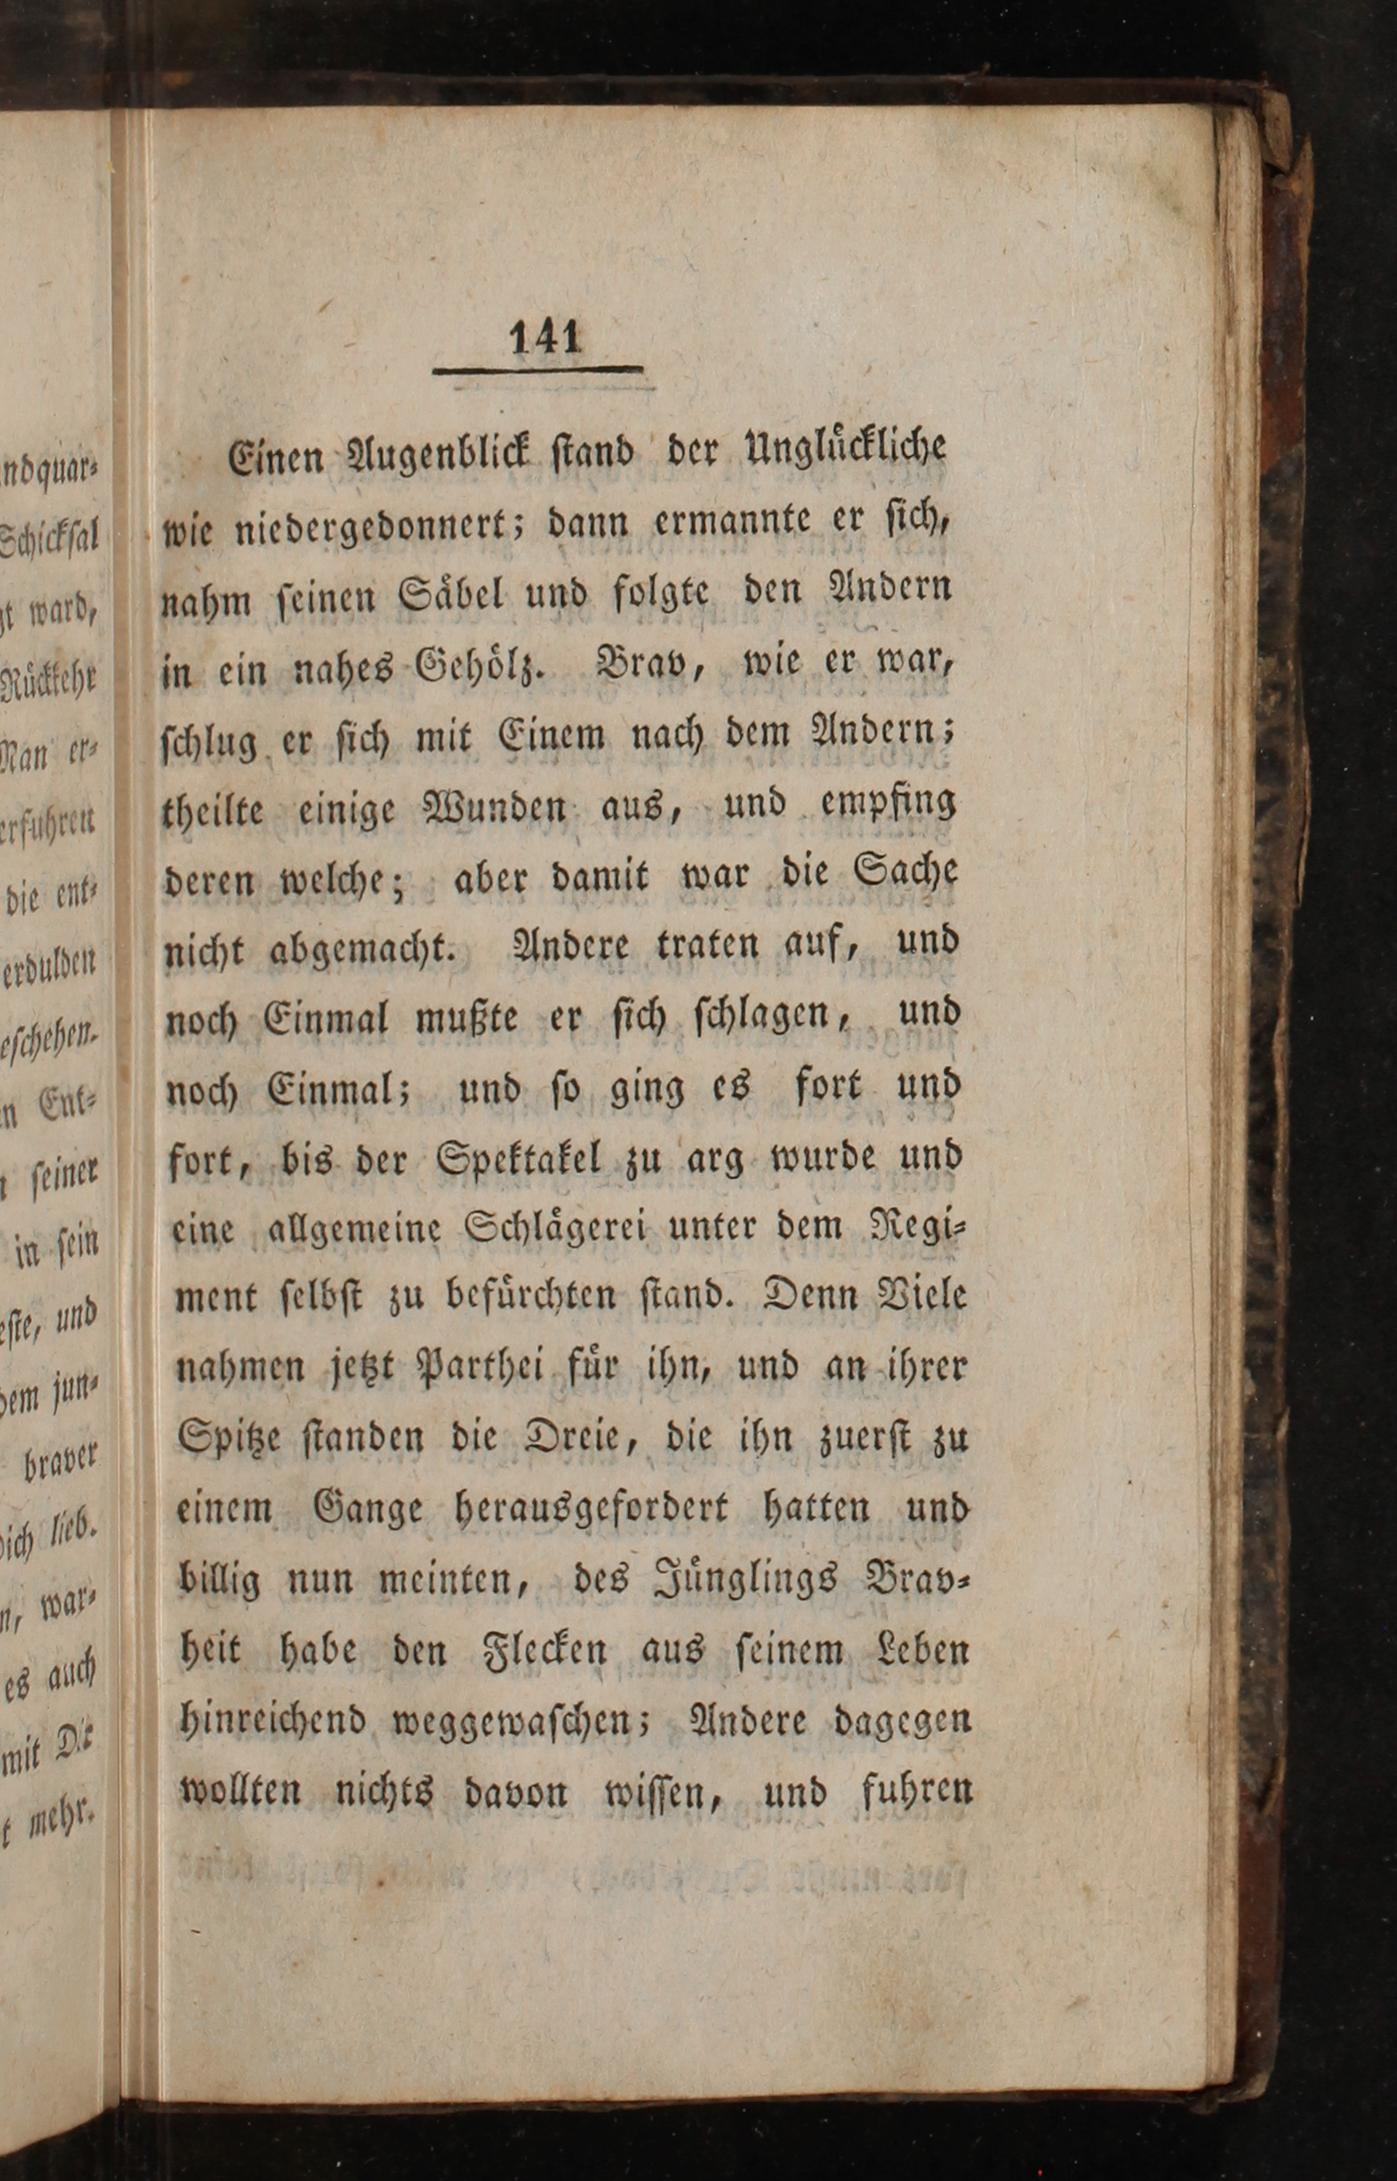 ndquar⸗
Schickſal
gt ward,
Rückkehr
Man er⸗
erfuhren
die ent⸗
erdulden
eſchehen.
n Ent⸗
ſeiner
in ſein
eſte, und
dem jun⸗
braver
dich lieb.
n, war⸗
es auch
mit Dir
t mehr.
141
Einen Augenblick ſtand der Unglückliche
wie niedergedonnert; dann ermannte er ſich,
nahm ſeinen Säbel und folgte den Andern
in ein nahes Gehölz. Brav, wie er war,
ſchlug er ſich mit Einem nach dem Andern;
theilte einige Wunden aus, und empfing
deren welche; aber damit war die Sache
nicht abgemacht. Andere traten auf, und
noch Einmal mußte er ſich ſchlagen, und
noch Einmal; und ſo ging es fort und
fort, bis der Spektakel zu arg wurde und
eine allgemeine Schlägerei unter dem Regi⸗
ment ſelbſt zu befürchten ſtand. Denn Viele
nahmen jetzt Parthei für ihn, und an ihrer
Spitze ſtanden die Dreie, die ihn zuerſt zu
einem Gange herausgefordert hatten und
billig nun meinten, des Jünglings Brav⸗
heit habe den Flecken aus ſeinem Leben
hinreichend weggewaſchen; Andere dagegen
wollten nichts davon wiſſen, und fuhren